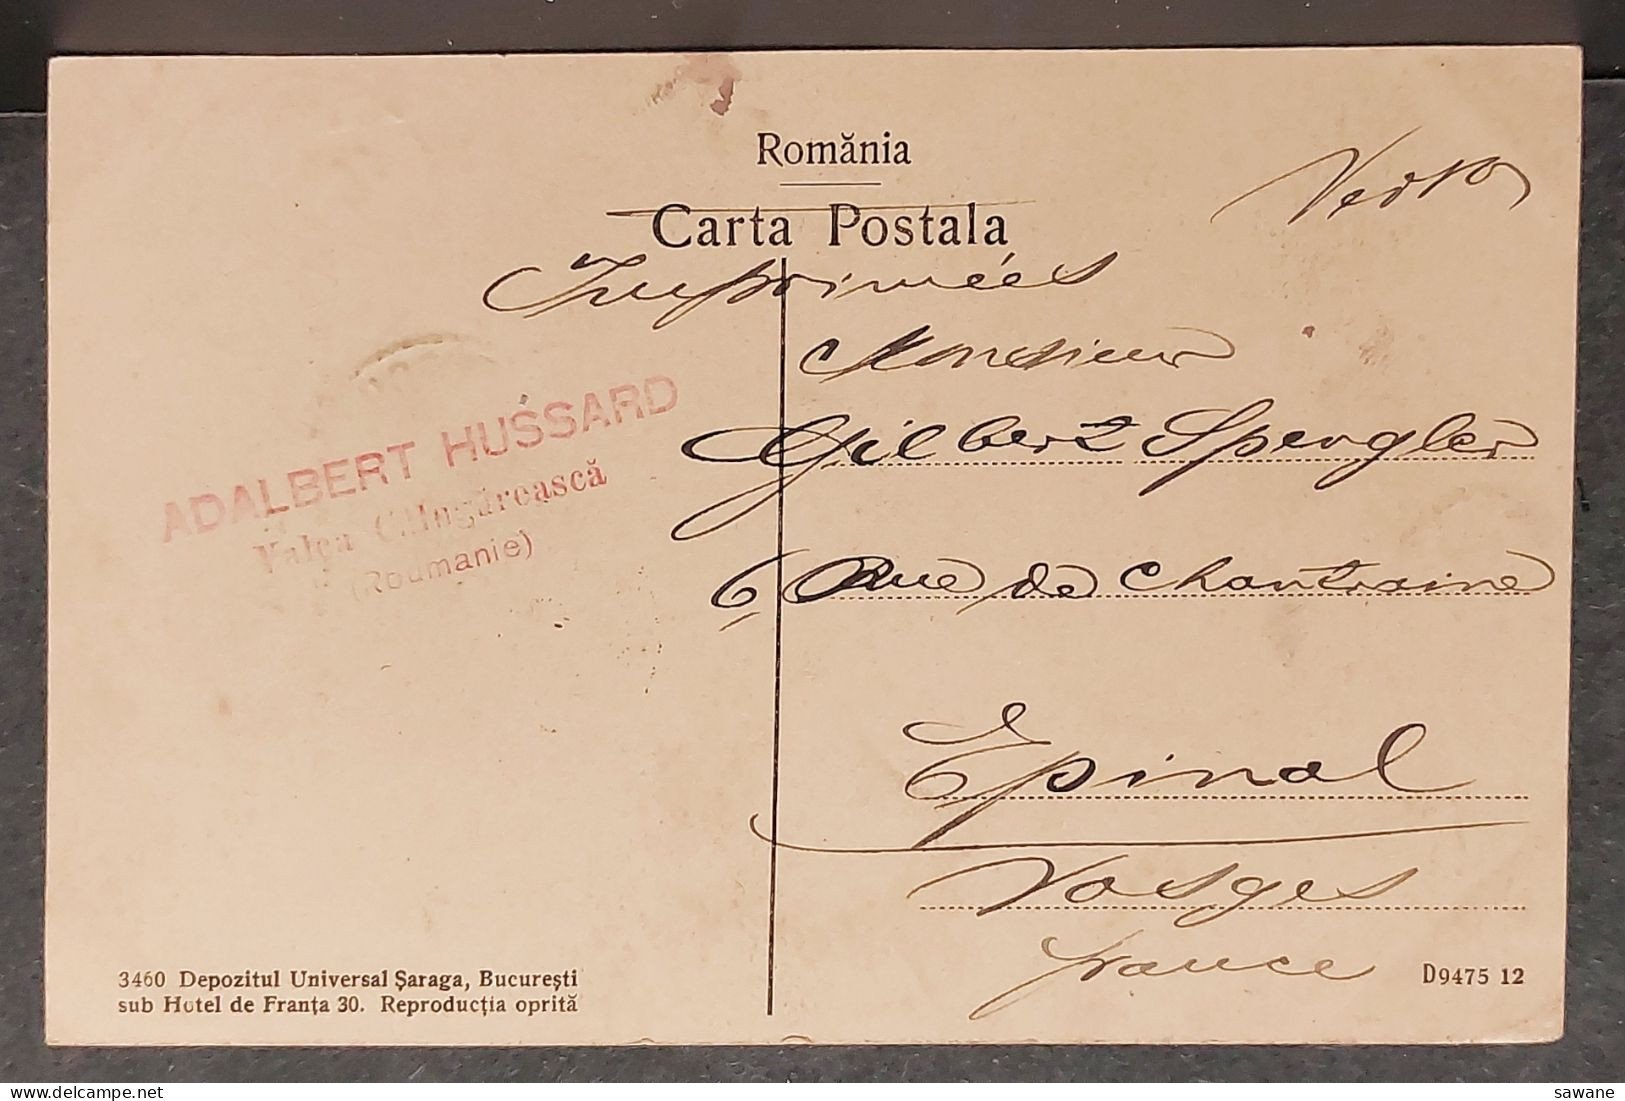 România
Carta Postala
Imprimées
Monsieur
Gilbert Spengler
6 Rue de Chantraine
Epinal
Vosges
france
ADALBERT HUSSARD
Valea Călugărească
(Roumanie)
3460 Depozitul Universal Șaraga, București
sub Hotel de Franța 30. Reproducția oprită
D9475 12
sawane